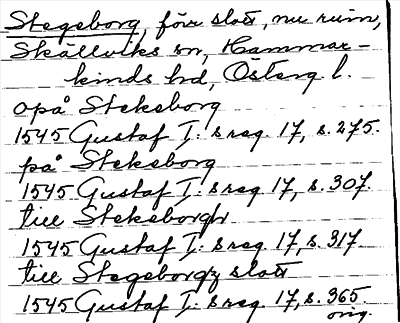 Stegeborg, förr slott, nu ruin,
Skällviks sn, Hammar-
kinds hd, Österg. l.
opå Stekeborg
1545 Gustaf I: s reg. 17, s. 275.
på Stekeborg
1545 Gustaf I: s reg 17, s. 307.
till Stekeborgh
1545 Gustaf I: s reg. 17, s. 317
till Stegeborgz slott
1545 Gustaf I: s reg 17, s. 365.
orig.